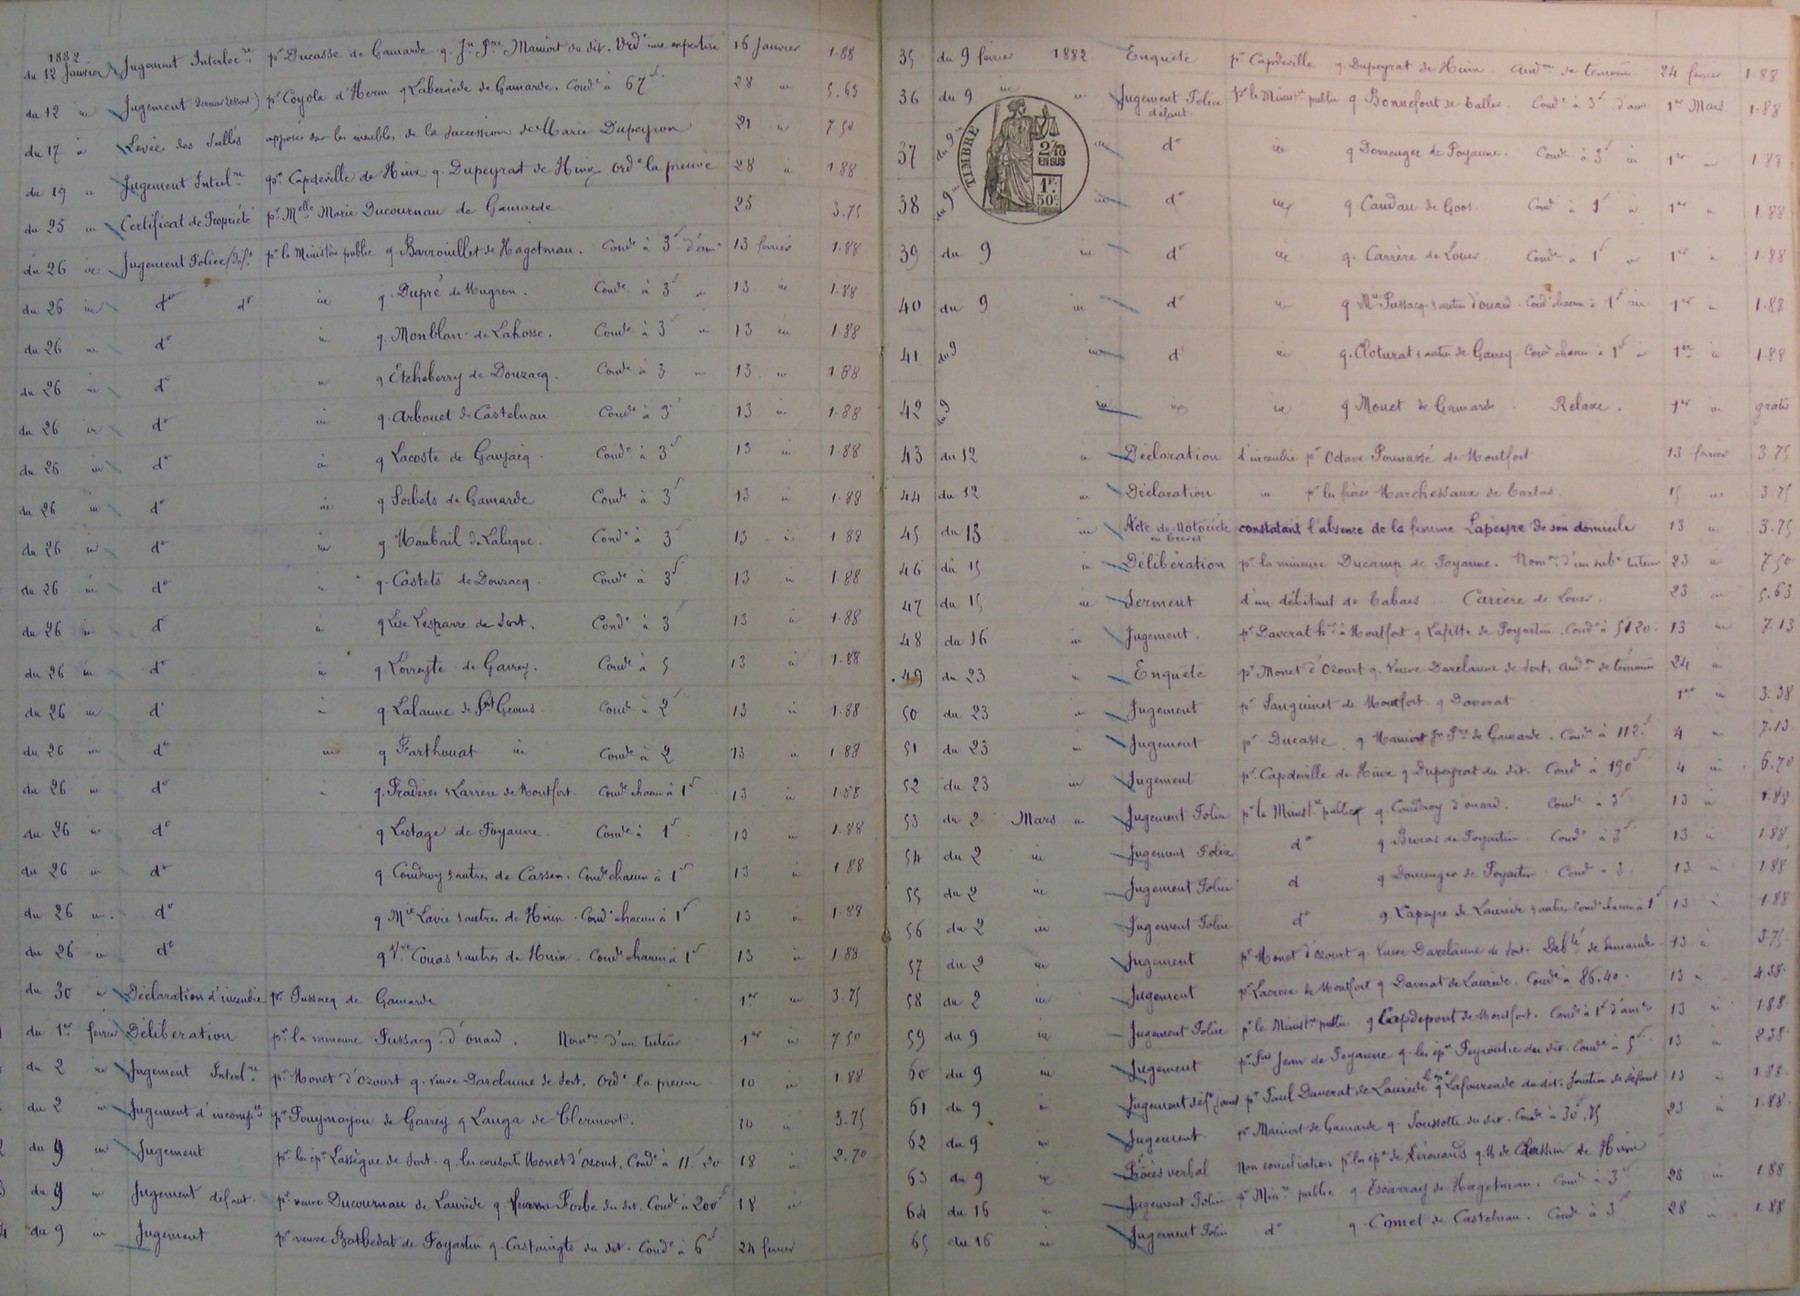 1882
du 12 Janvier Jugement Interloc.re pr Ducasse de Gamarde q. Jn Pre Maniort du dit. Ord.e une expertise 16 Janvier 1.88
du 12 Jugement (Dernier Ressort) pr Coyola d'Herm q Labernède de Gamarde. Cond.é à 67 f 28 5.63
du 17 Levée des Scellés apposés sur les meubles de la succession de Marie Dupeyron 21 7 50
du 19 Jugement Interl.re pr Capdeville de Hinx q. Dupeyrat de Hinx Ord.e la preuve 28 1 88
du 25 Certificat de Propriété pr Melle Marie Ducournau de Gamarde 25 3.75
du 26 Jugement Police pr le Ministère public q Barrouillet de Hagetmau. Cond.é à 3 f d'am. 13 février 1.88
du 26 do do q. Dupré de Mugron. Cond.é à 3 f 13 1.88
du 26 do q. Monblanc de Lahosse. Cond.é à 3 13 1.88
du 26 do q Etcheberry de Donzacq. Cond.é à 3 13 1.88
du 26 do q. Arbouet de Castelnau Cond.é à 3 f 13 1.88
du 26 do q Lacoste de Gaujacq. Cond.é à 3 f 13 1.88
du 26 do q Sorbets de Gamarde Cond.é à 3 f 13 1.88
du 26 do q Maubail de Laluque. Cond.é à 3 f 13 1 88
du 26 do q. Castets de Donzacq. Cond.é à 3 f 13 1.88
du 26 do q Lise Lesparre de Sort. Cond.é à 3 f 13 1.88
du 26 do q. Lovreyte de Garrey. Cond.é à 5 13 1.88
du 26 do q Lalanne de St Geours. Cond.é à 2 f 13 1.88
du 26 do q Farthouat Cond.é à 2 13 1.88
du 26 do q. Pradères & Larrère de Montfort. Cond.é chacun à 1 f 13 1.88
du 26 do q Lestage de Poyanne. Cond.é à 1 f 13 1.88
du 26 do q. Coudroy & autres de Cassen. Cond.é chacun à 1 f 13 1 88
du 26 do q Mie Lavie & autres de Hinx. Cond.é chacun à 1 f 13 1.88
du 26 do q Vve Couas & autres de Hinx. Cond.é chacun à 1 f 13 1.88
du 30 Déclaration d'incendie pr Pussacq de Gamarde 1er 3 75
du 1er février Délibération pr la mineure Pussacq d'Onard. Nom.on d'un tuteur 1er 7 50
du 2 Jugement Interl.re pr Monet d'Ozourt q. veuve Darclanne de Sort. Ord.e la preuve 10 1 88
du 2 Jugement d'incomp.ce pr Pouymayou de Garrey q Lauga de Clermont. 10 3.75
du 9 Jugement pr les ép.x Lassègue de Sort q. les consorts Monet d'Ozourt. Cond.é à 11 f 20 18 2.70
du 9 Jugement défaut pr veuve Ducournau de Laurède q. Forbe du dit. Cond.é à 200 f 18
du 9 Jugement pr veuve Batbedat de Poyartin q. Castaingts du dit. Cond.é à 6 f 24 février
35 du 9 février 1882 Enquête pr Capdeville q. Dupeyrat de Hinx. Aud.on de témoins 24 février 1.88
36 du 9 Jugement Police défaut pr le Minist.re public q Bonnefont de Cattes. Cond.é à 3 f d'am 1er Mars 1.88
TIMBRE
2/10
EN SUS
1 F.
50 c.
37 du 9 do q Domenger de Poyanne. Cond.é à 3 f 1er 1 88
38 du 9 do q Candau de Goos Cond.é à 1 f 1er 1.88
39 du 9 do q. Carrère de Louer Cond.é à 1 f 1er 1.88
40 du 9 do q. Mie Pussacq & autres d'Onard. Cond.é chacun à 1 f 1er 1.88
41 du 9 do q. Cloturat & autres de Garrey Cond.é chacun à 1 f 1er 1.88
42 du 9 q Monet de Gamarde. Relaxe. 1er gratis
43 du 12 Déclaration d'incendie pr Octave Pomassé de Montfort 13 février 3.75
44 du 12 Déclaration pr les frères Marchessaux de Cartas 15 3.75
45 du 13 Acte de Notoriété en brevet constatant l'absence de la femme Lapeyre de son domicile 13 3.75
46 du 15 Délibération pr la mineure Ducamp de Poyanne. Nom.on d'un sub. tuteur 23 7.50
47 du 15 Serment d'un débitant de tabacs Carrère de Louer 23 5.63
48 du 16 Jugement. pr Daverat à Montfort q Lafitte de Poyartin. Cond.é à 51 20. 13 7.13
49 du 23 Enquête pr Monet d'Ozourt q. veuve Darclanne de Sort. Aud.on de témoins 24
50 du 23 Jugement pr Sanguinet de Montfort q Daverat 1er 3.38
51 du 23 Jugement pr Ducasse q Maniort Jn Pre de Gamarde. Cond.é à 112 f 4 7.13
52 du 23 Jugement pr Capdeville de Hinx q Dupeyrat du dit. Cond.é à 190 f 4 6.70
53 du 2 Mars Jugement Police pr le Minist.re public q. Coudroy d'Onard. Cond.é à 3 f 13 1.88
54 du 2 Jugement Police do q Buras de Poyartin Cond.é à 3 f 13 1.88
55 du 2 Jugement Police d q Domenger de Poyartin Cond.é à 3 13 1.88
56 du 2 Jugement Police do q Lapeyre de Laurède & autres Cond.é chacun à 1 f 13 1.88
57 du 2 Jugement pr Monet d'Ozourt q veuve Darclanne de Sort. Déb.té de demande 13 3.75
58 du 2 Jugement pr Lacroix de Montfort q Daverat de Laurède. Cond.é à 86.40. 13 4.38
59 du 9 Jugement Police pr le Minist.re public q Capdepont de Montfort. Cond.é à 1 f d'am.de 13 1 88
60 du 9 Jugement pr Jean de Poyanne q. les ép.x Peyroutie du dit. Cond.é à 5 f 13 2.38
61 du 9 Jugement déf.t joint pr Paul Daverat de Laurède q Lafourcade du dit. Jonction de défaut 13 1.88
62 du 9 Jugement pr Maniort de Gamarde q. Soussotte du dit. Cond.é à 30 f.75 23 1.88
63 du 9 Procès verbal Non conciliation pr les ép.x de q. M. de de Hinx
64 du 16 Jugement Police pr Min.re public q Escarray de Hagetmau. Cond.é à 3 f 28 1 88
65 du 16 Jugement Police do q. Comet de Castelnau. Cond.é à 3 f 28 1.88